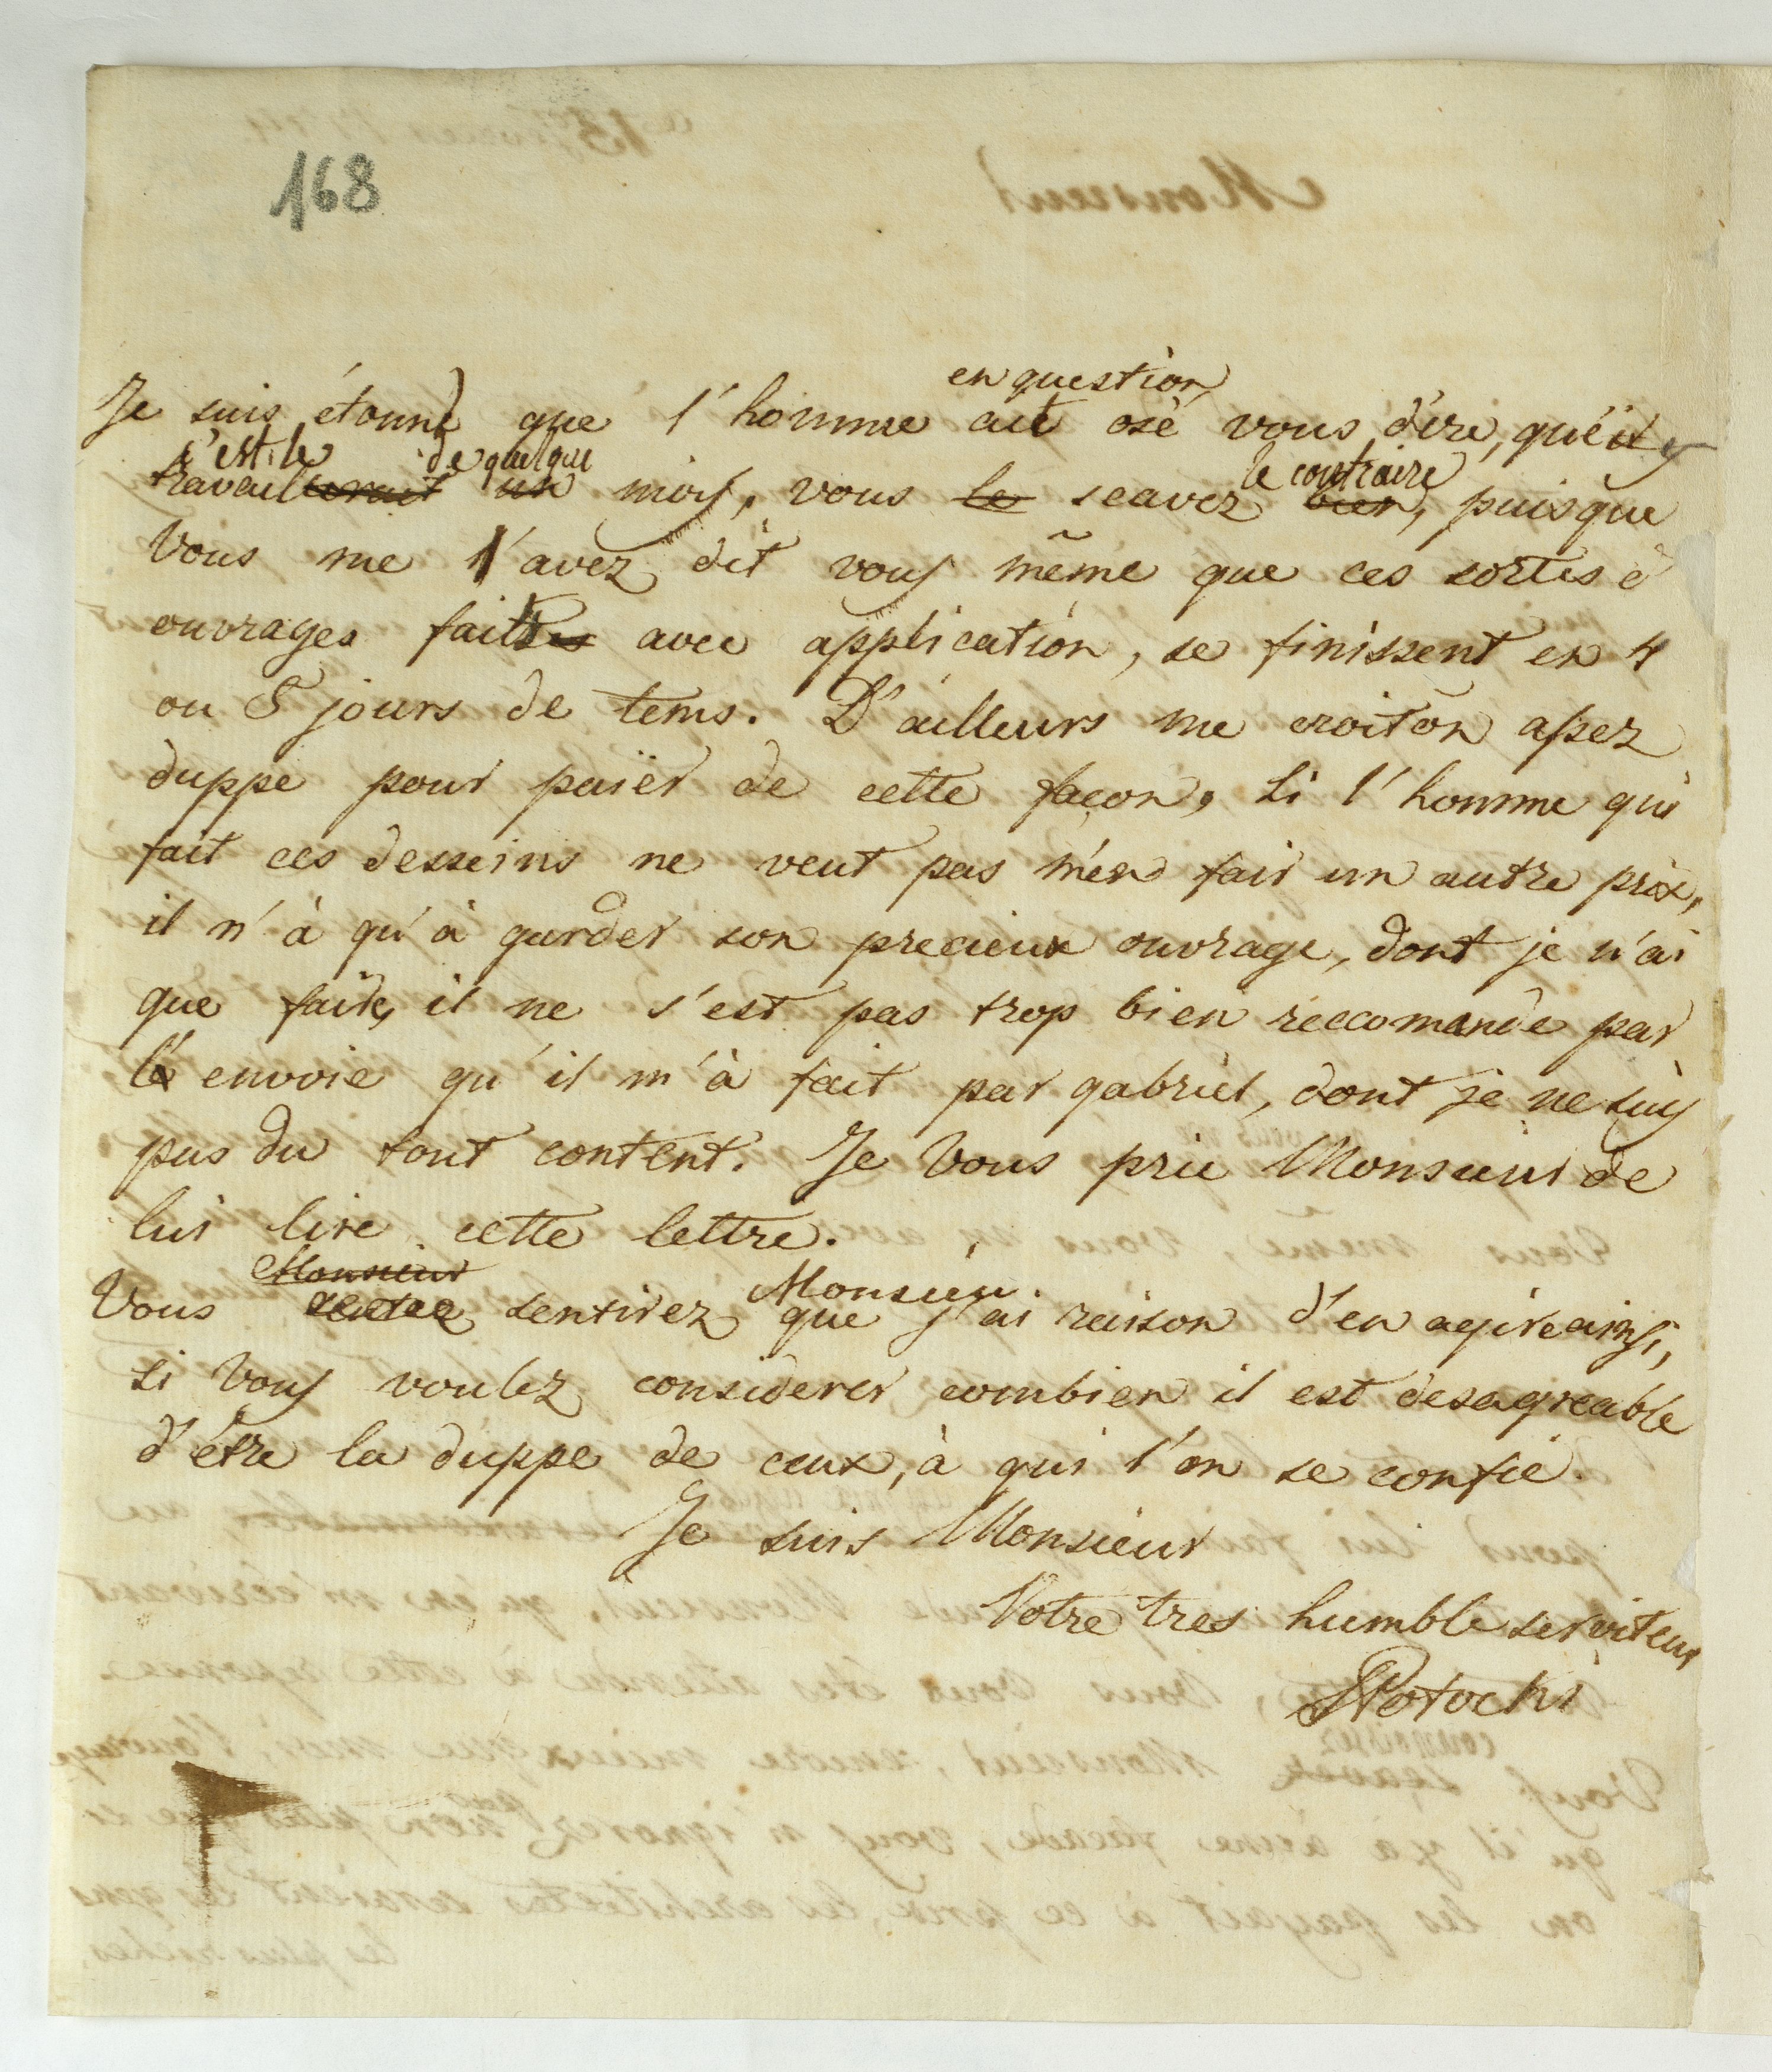 168
en question
Je suis étonné que l'homme ait osé vous dire, que
c'est le de quelque le contraire
travaillerait un mois, vous le scavez bien, puisque
Vous me l'avez dit vous même que ces sortes d
ouvrages faits avec application, se finissent en 4
ou 5 jours de tems. D'ailleurs me croit on assez
duppe pour paiër de cette façon, si l'homme qui
fait ces desseins ne veut pas m'en fair un autre prix,
il n'à qu'à garder son precieux ouvrage, dont je n'ai
que faire, il ne s'est pas trop bien reccomande par
l'envoie qu'il m'à fait par gabriel, dont je ne suis
pas du tout content. Je Vous prie Monsieur de
lui lire cette lettre.
Monsieur Monsieur
Vous sentirez que j'ai raison d'en agir ainsi,
si Vous voulez considerer combien il est desagreable
d'être la duppe de ceux, à qui l'on se confie.
Je suis Monsieur
Votre tres humble serviteur
SPotocki